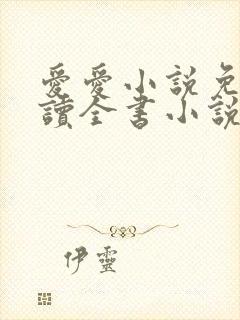 愛愛小説免
讀全書小說
伊靈